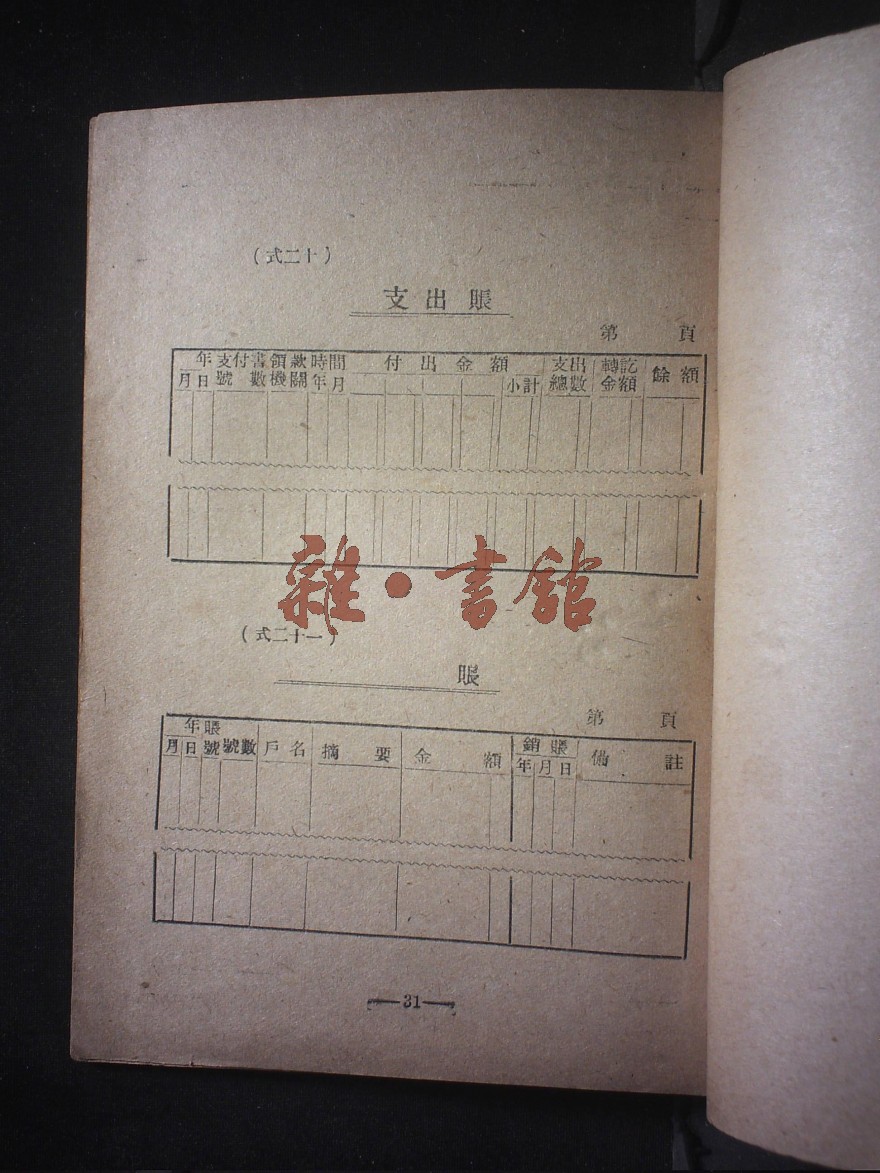 (式二十)
支出賬
第 頁
年 支付書 領款 時間 付出金額 支出 轉訖 餘額
月 日 號數 機關 年 月 小計 總數 金額
雜·書館
(式二十一)
賬
第 頁
年 賬 銷賬
月 日 號 號數 戶名 摘要 金額 年 月 日 備註
—31—